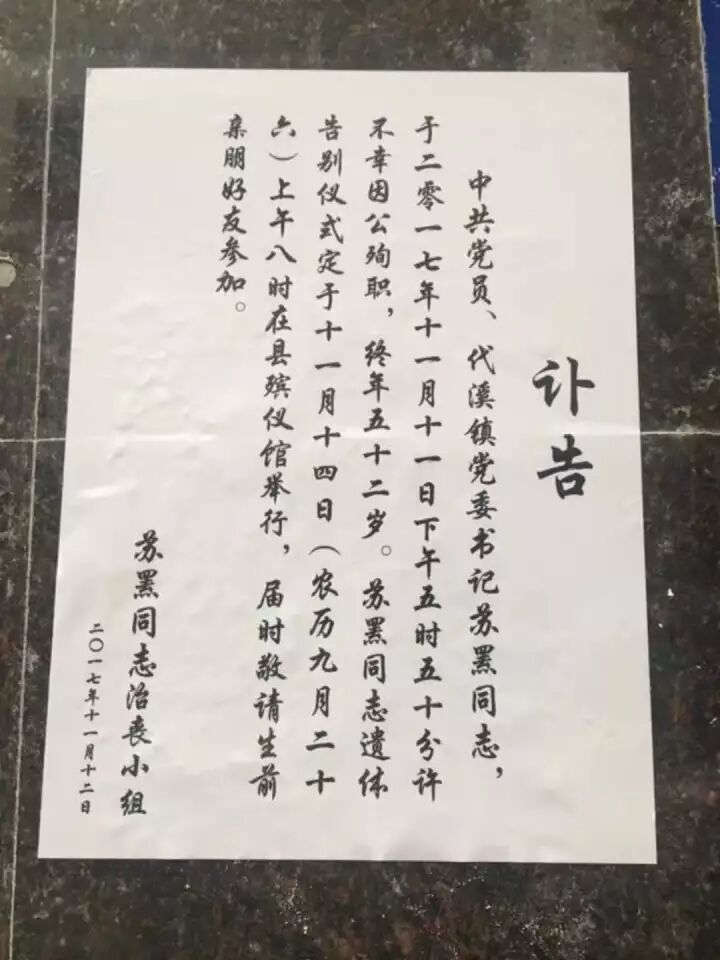 讣告
中共党员、代溪镇党委书记苏黑同志，
于二零一七年十一月十一日下午五时五十分许
不幸因公殉职，终年五十二岁。苏黑同志遗体
告别仪式定于十一月十四日（农历九月二十
六）上午八时在县殡仪馆举行，届时敬请生前
亲朋好友参加。
苏黑同志治丧小组
二〇一七年十一月十二日